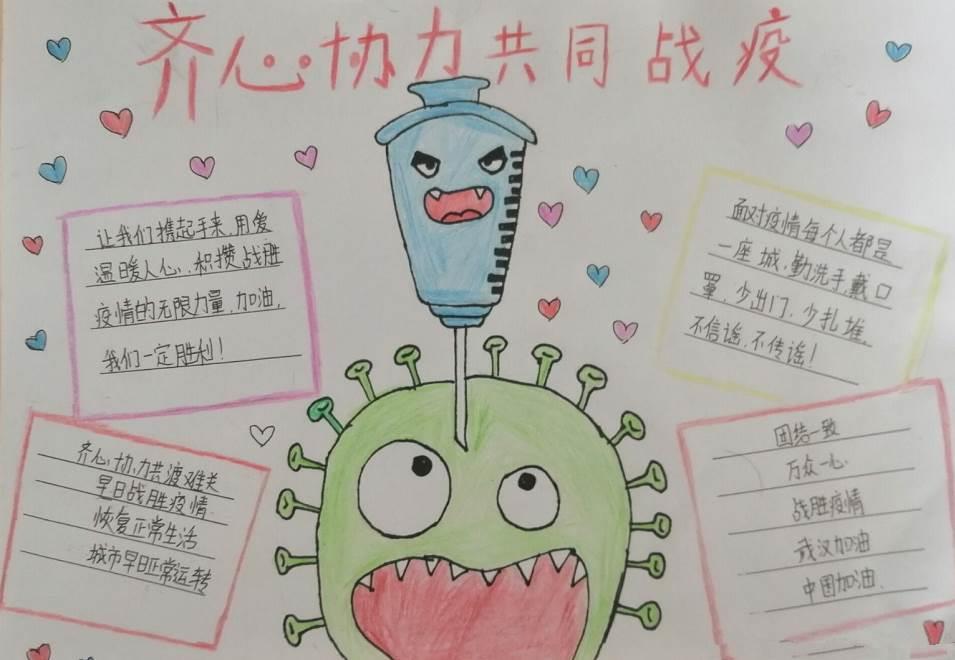 齐心协力共同战疫
让我们携起手来,用爱
温暖人心,积攒战胜
疫情的无限力量,加油,
我们一定胜利!
面对疫情每个人都是
一座城,勤洗手,戴口
罩,少出门,少扎堆,
不信谣,不传谣!
齐心协力共渡难关
早日战胜疫情
恢复正常生活
城市早日正常运转
团结一致
万众一心
战胜疫情
武汉加油
中国加油、